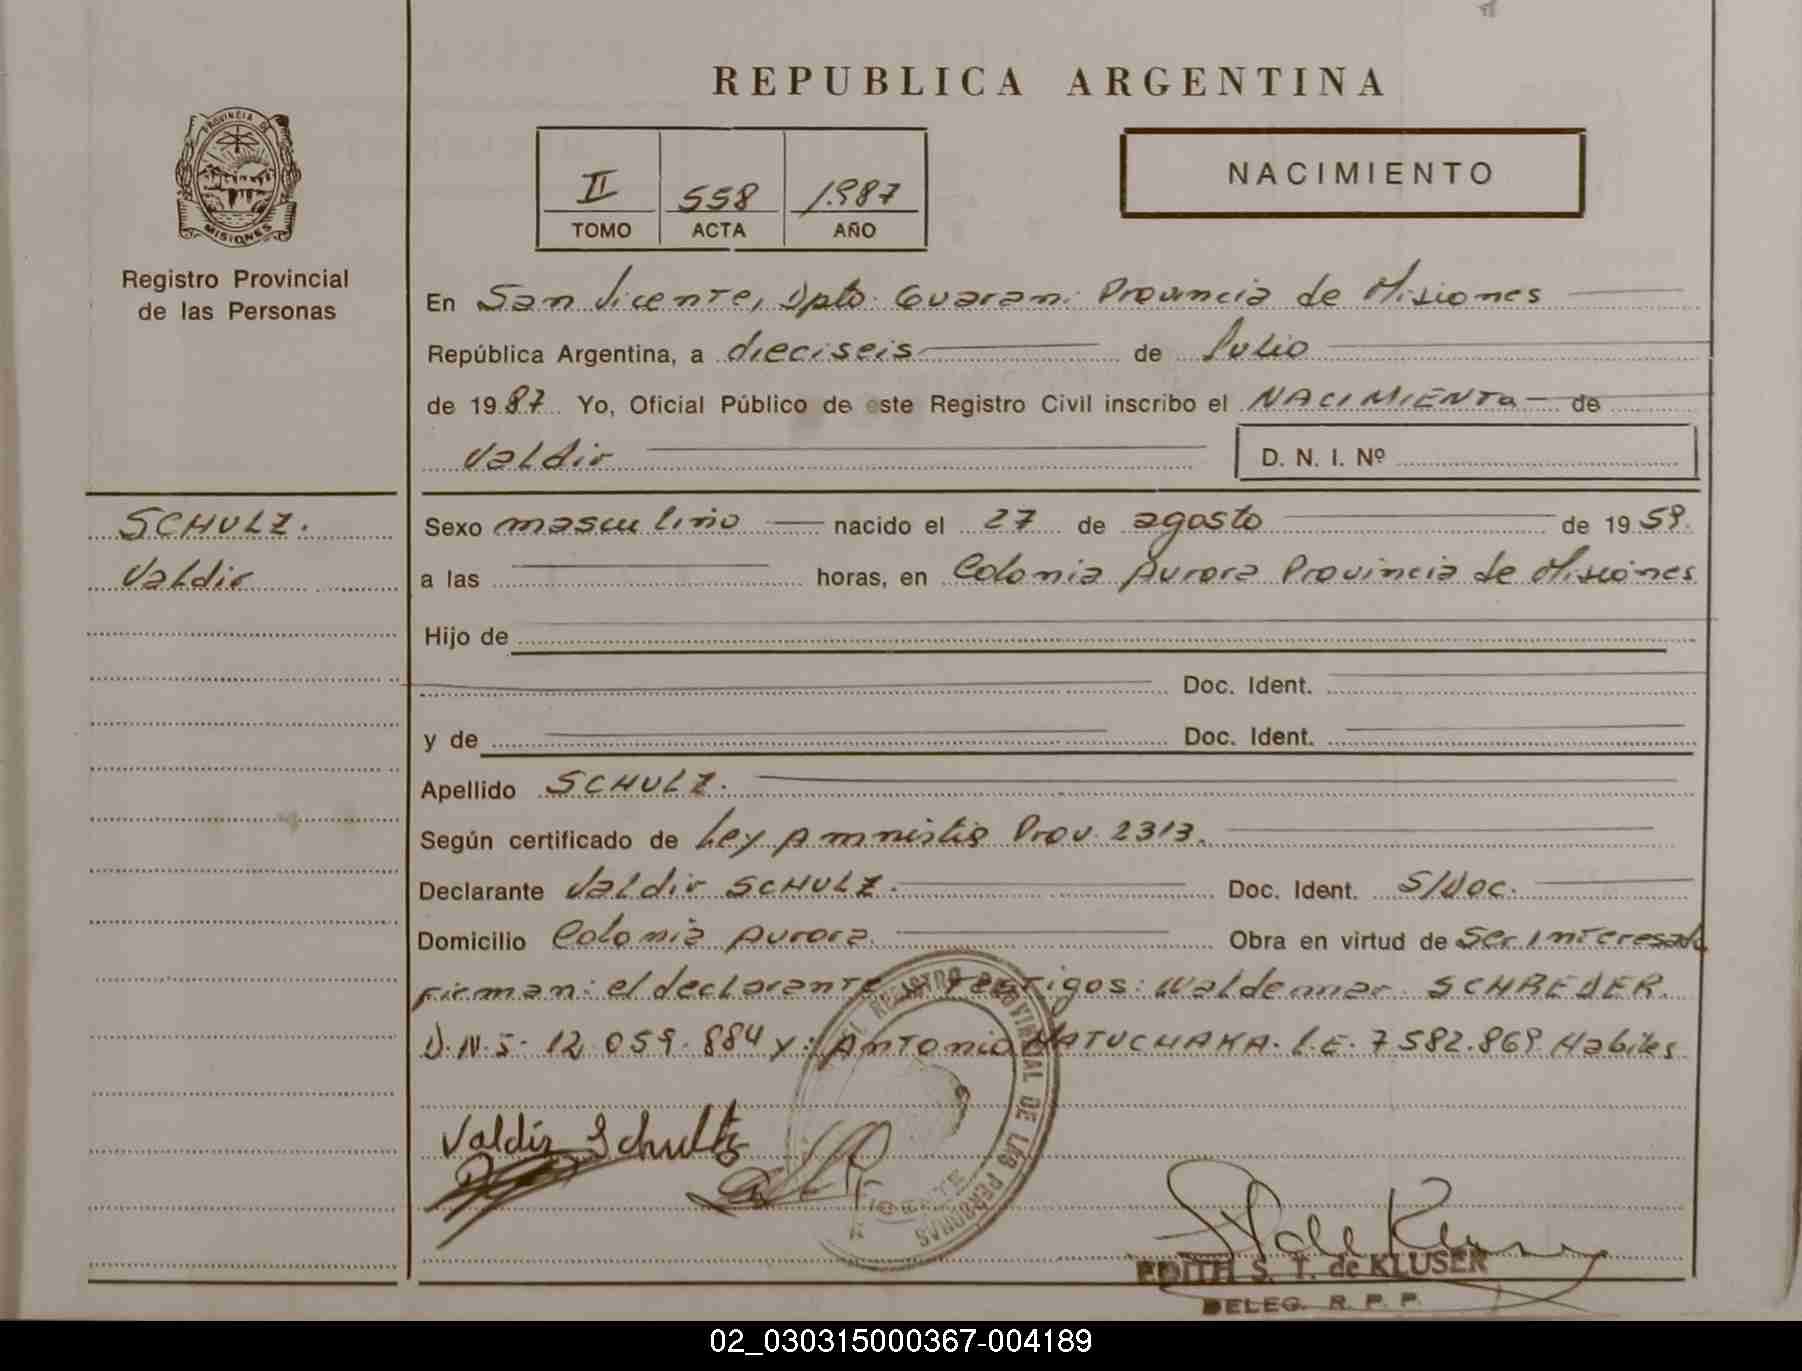 REPUBLICA ARGENTINA
PROVINCIA DE
MISIONES
Registro Provincial
de las Personas
II 558 1.987
TOMO ACTA AÑO
NACIMIENTO
En San Vicente, Dpto. Guarani Provincia de Misiones
República Argentina, a dieciseis de Julio
de 19 87 Yo, Oficial Público de este Registro Civil inscribo el NACIMIENTO de
Valdir D. N. I. Nº
SCHULZ.
Valdir
Sexo masculino nacido el 27 de agosto de 19 59.
a las horas, en Colonia Aurora Provincia de Misiones
Hijo de
Doc. Ident.
y de Doc. Ident.
Apellido SCHULZ.
Según certificado de Ley Amnistia Prov. 2313.
Declarante Valdir SCHULZ. Doc. Ident. S/Doc.
Domicilio Colonia Aurora. Obra en virtud de Ser interesado
Firman: el declarante y Testigos: Waldemar SCHREDER.
D.N.I. 12.059.884 y: Antonio MATUCHAKA. L.E. 7.582.869. Habiles
Valdir Schultz
REGISTRO PROVINCIAL DE LAS PERSONAS
EDITH S. T. de KLUSER
DELEG. R. P. P.
02_030315000367-004189